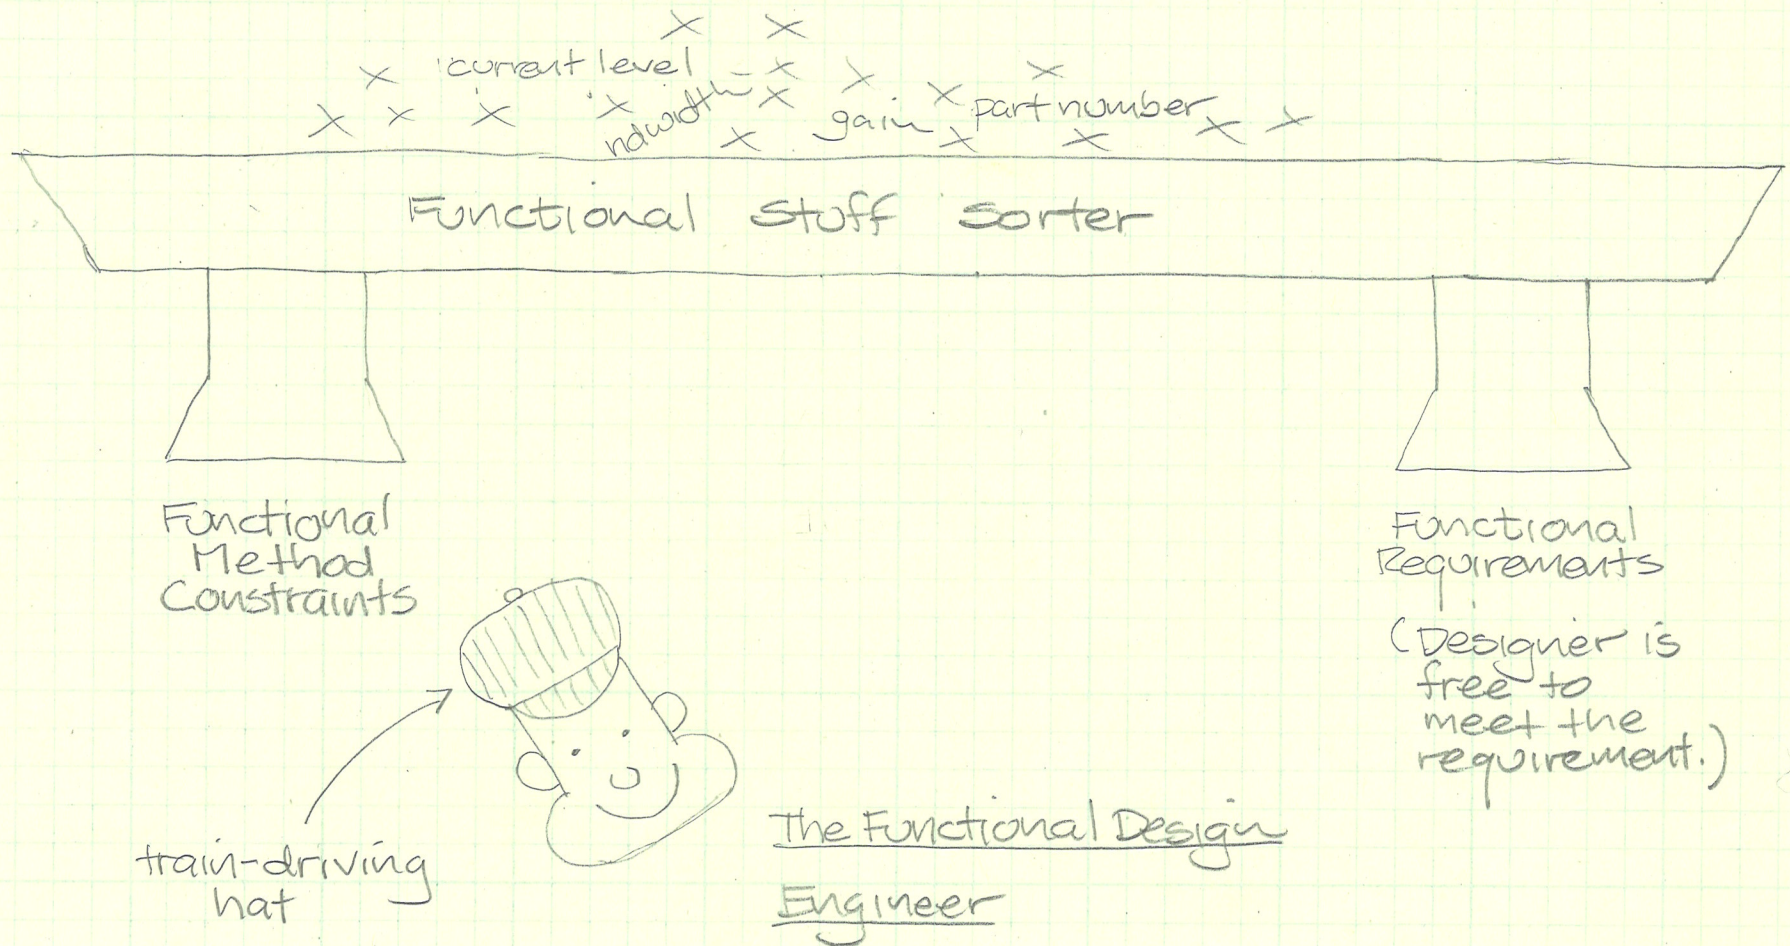 current level
ndwidth
gain
part number
Functional Stuff Sorter
Functional
Method
Constraints
Functional
Requirements
(Designer is
free to
meet the
requirement.)
train-driving
hat
The Functional Design
Engineer